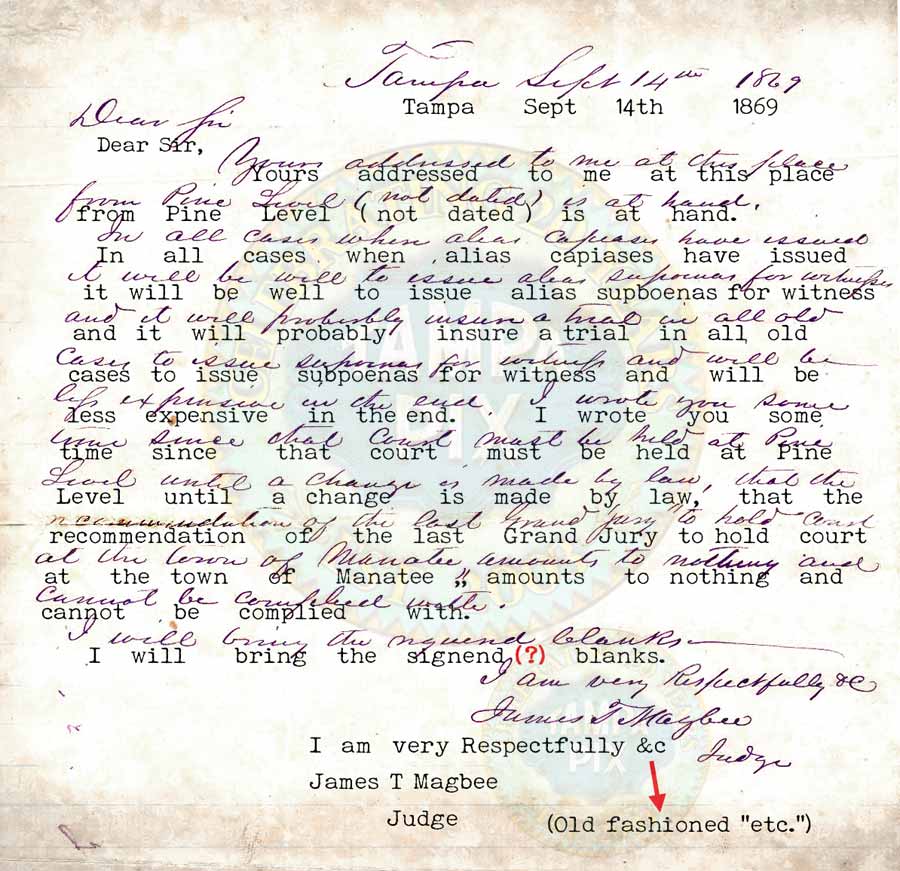 Tampa Sept 14th 1869
Tampa Sept 14th 1869
Dear Sir
Dear Sir,
Yours addressed to me at this place
Yours addressed to me at this place
from Pine Level (not dated) is at hand.
from Pine Level (not dated) is at hand.
In all cases when alias capiases have issued
In all cases when alias capiases have issued
it will be well to issue alias supoenas for witness
it will be well to issue alias supboenas for witness
and it will probably insure a trial in all old
and it will probably insure a trial in all old
cases to issue supoenas for witness and will be
cases to issue subpoenas for witness and will be
less expensive in the end. I wrote you some
less expensive in the end. I wrote you some
time since that court must be held at Pine
time since that court must be held at Pine
Level until a change is made by law, that the
Level until a change is made by law, that the
recommendation of the last Grand Jury to hold court
recommendation of the last Grand Jury to hold court
at the town of Manatee amounts to nothing and
at the town of Manatee „ amounts to nothing and
cannot be complied with.
cannot be complied with.
I will bring the blanks
I will bring the signend (?) blanks.
I am very Respectfully &C
James T Magbee
Judge
I am very Respectfully &c
James T Magbee
Judge
(Old fashioned "etc.")
TAMPA
PIX
TAMPA
PIX